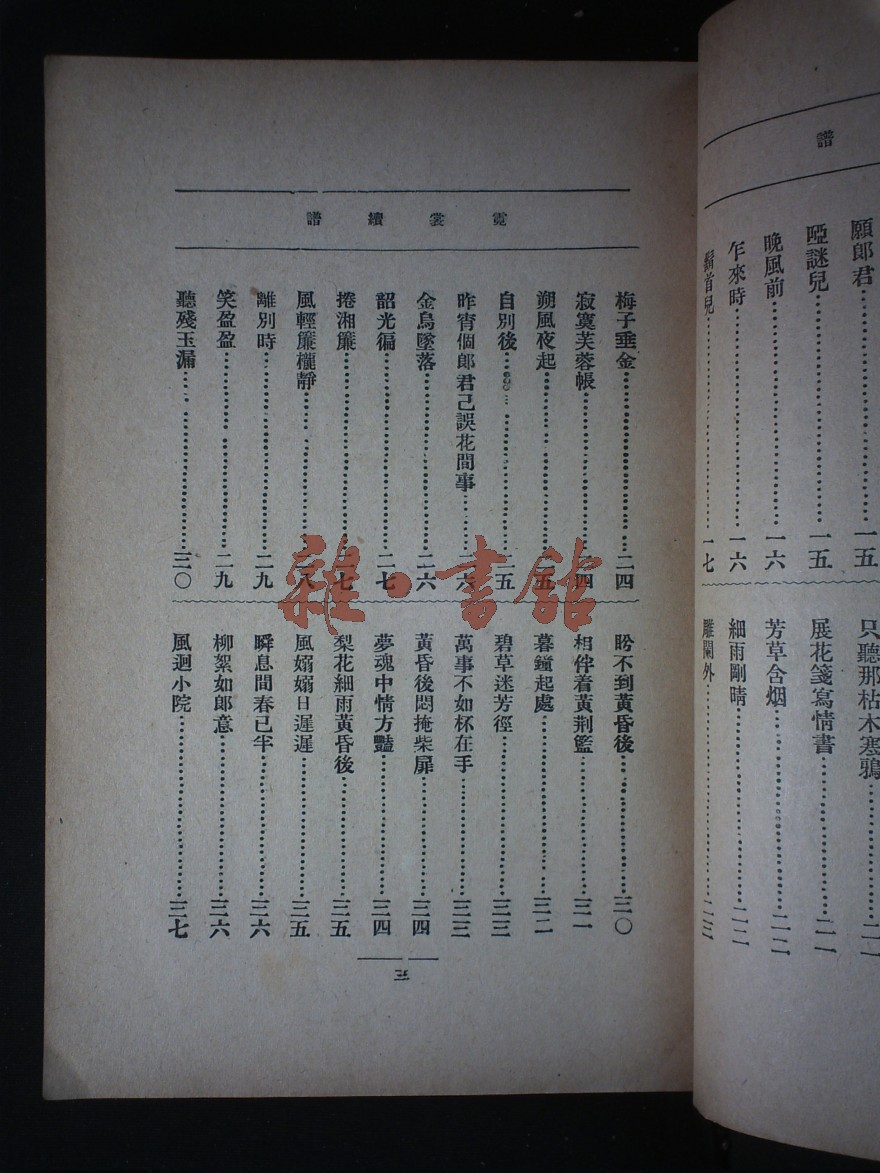 譜
願郎君……一五
啞謎兒……一五
晚風前……一六
乍來時……一六
首兒……一七
只聽那枯木塞鴉……二一
展花箋寫情書……二一
芳草含烟……二二
細雨剛晴……二二
雕闌外……二三
霓裳續譜
梅子垂金……二四
寂寞芙蓉帳……二四
朔風夜起……二五
自別後……二五
昨宵個郎君己誤花間事……二六
金烏墜落……二六
韶光徧……二七
捲湘簾……二七
風輕簾櫳靜……二八
離別時……二九
笑盈盈……二九
聽殘玉漏……三〇
盼不到黃昏後……三〇
相伴着黃荆籃……三一
暮鐘起處……三二
碧草迷芳徑……三三
萬事不如杯在手……三三
黃昏後悶掩柴扉……三四
夢魂中情方豔……三四
梨花細雨黃昏後……三五
風嫋嫋日遲遲……三五
瞬息間春已半……三六
柳絮如郎意……三六
風迴小院……三七
三
雜·書館